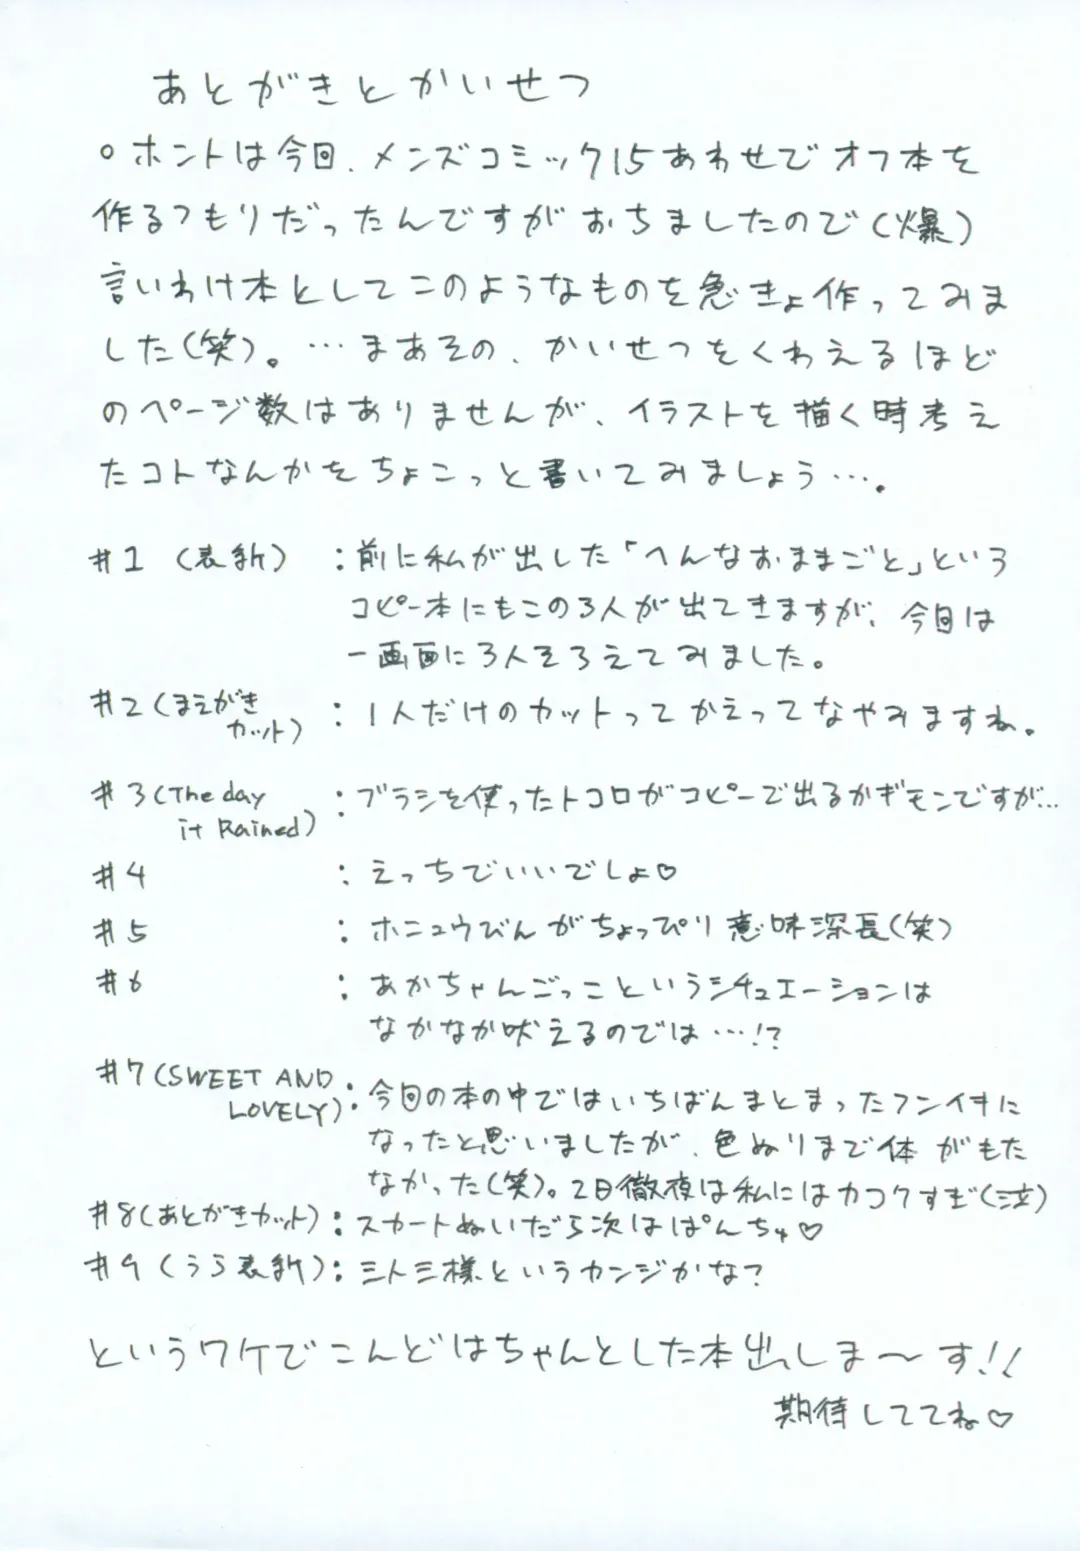 あとがきとかいせつ
○ホントは今回、メンズコミック15あわせでオフ本を
作るつもりだったんですがおちましたので(爆)
言いわけ本としてこのようなものを急きょ作ってみま
した(笑)。…まあその、かいせつをくわえるほど
のページ数はありませんが、イラストを描く時考え
たコトなんかをちょこっと書いてみましょう…。
#1 (表紙) :前に私が出した「へんなおままごと」という
コピー本にもこの3人が出てきますが、今回は
一画面に3人そろえてみました。
#2(まえがき
カット) :1人だけのカットってかえってなやみますね。
#3(The day
it Rained) :ブラシを使ったトコロがコピーで出るかギモンですが…
#4 :えっちでいいでしょ♡
#5 :ホニュウびんがちょっぴり意味深長(笑)
#6 :あかちゃんごっこというシチュエーションは
なかなか吠えるのでは…!?
#7(SWEET AND
LOVELY):今回の本の中ではいちばんまとまったフンイキに
なったと思いましたが、色ぬりまで体がもた
なかった(笑)。2日徹夜は私にはカコクすぎ(泣)
#8(あとがきカット):スカートぬいだら次はぱんちゅ♡
#9(うら表紙):三人三様というカンジかな?
というワケでこんどはちゃんとした本出しま〜す!!
期待しててね♡